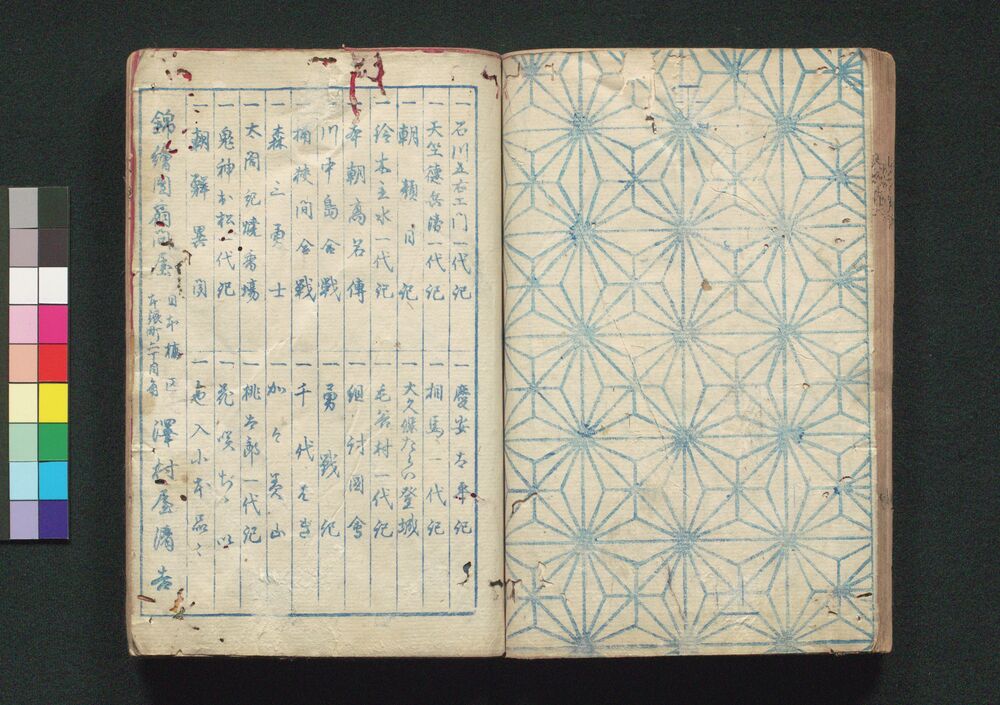 一 石川五右エ門一代記
一 慶安太平記
一 天竺徳兵衛一代記
一 相馬一代記
一 朝顔日記
一 大久保たらい登城
一 鈴木主水一代記
一 毛谷村一代記
一 本朝高名傳
一 組討圖會
一 川中島合戰
一 勇戰記
一 桶狹間合戰
一 千代
一 森三勇士
一 加々美山
一 太閤記燒香場
一 桃太郎一代記
一 鬼神お松一代記
一 花咲ぢゝい
一 朝鮮異聞
一 入小本品々
錦繪團扇問屋 日本橋區本銀町二丁目角 澤村屋清吉